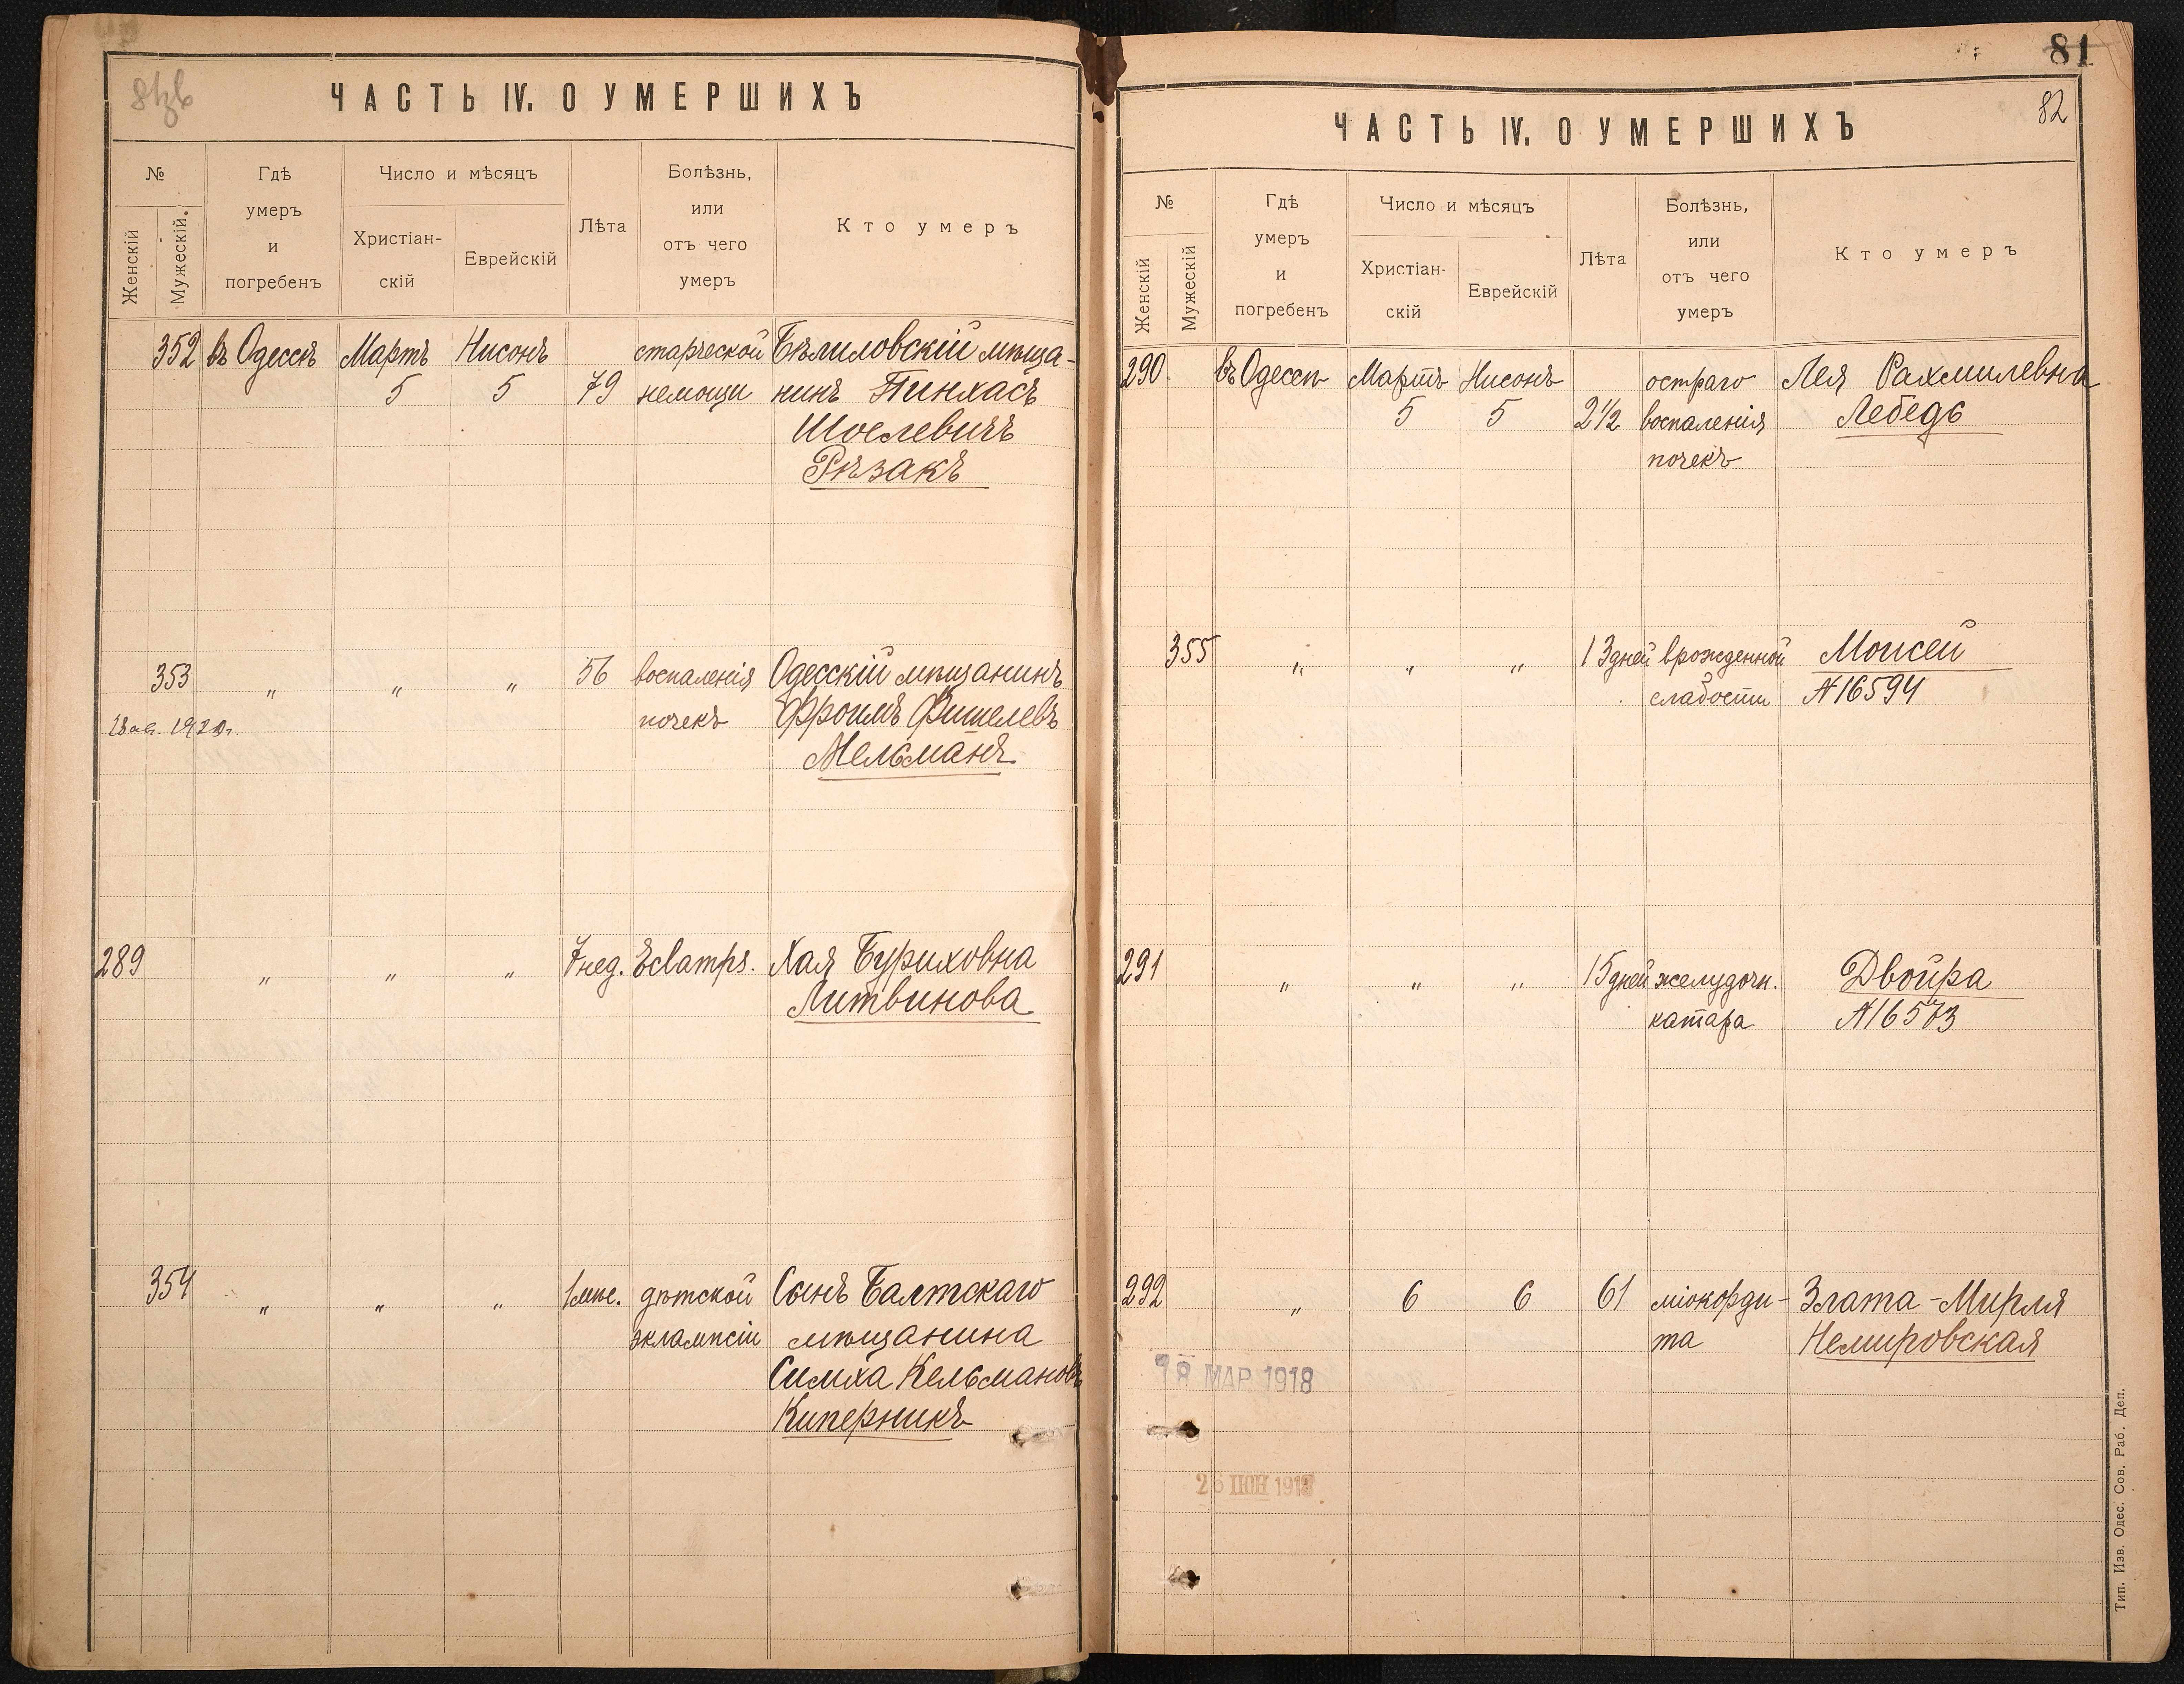 81зв
ЧАСТЬ IV. О УМЕРШИХЪ
№
Женскій
Мужескій.
Гдѣ
умеръ
и
погребенъ
Число и мѣсяцъ
Христіан-
скій
Еврейскій
Лѣта
Болѣзнь,
или
отъ чего
умеръ
Кто умеръ
352 въ Одессѣ Мартъ Нисонъ старческой Бѣлиловскій мѣща-
5 5 79 немощи нинъ Пинхасъ
Шоелевичъ
Рѣзакъ
353 " " " 56 воспаленія Одесскій мѣщанинъ
1920г. почекъ Фроимъ Фишелевъ
Мельманъ
289 " " " 7 нед. Eclamps. Хая Буриховна
Литвинова
354 " " " 1 мѣс. дѣтской Сынъ Балтскаго
эклампсіи мѣщанина
Симха Кельмановъ
Киперникъ
81
82
ЧАСТЬ IV. О УМЕРШИХЪ
№
Женскій
Мужескій
Гдѣ
умеръ
и
погребенъ
Число и мѣсяцъ
Христіан-
скій
Еврейскій
Лѣта
Болѣзнь,
или
отъ чего
умеръ
Кто умеръ
290. въ Одессѣ Мартъ Нисонъ остраго Лея Рахмилевна
5 5 2 1/2 воспаленія Лебедь
почекъ
355 " " " 13 дней врожденной Моисей
слабости №16594
291 " " " 15 дней желудочн. Двойра
катара №16573
292 " 6 6 61 міокорди- Злата-Мирля
та Немировская
18 МАР 1918
26 ІЮН 1918
Тип. Изв. Одес. Сов. Раб. Деп.